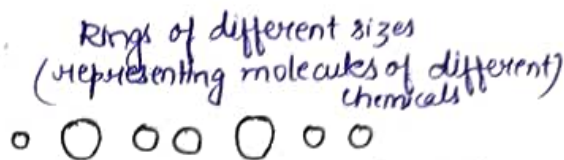 Rings of different sizes
(representing molecules of different)
chemicals